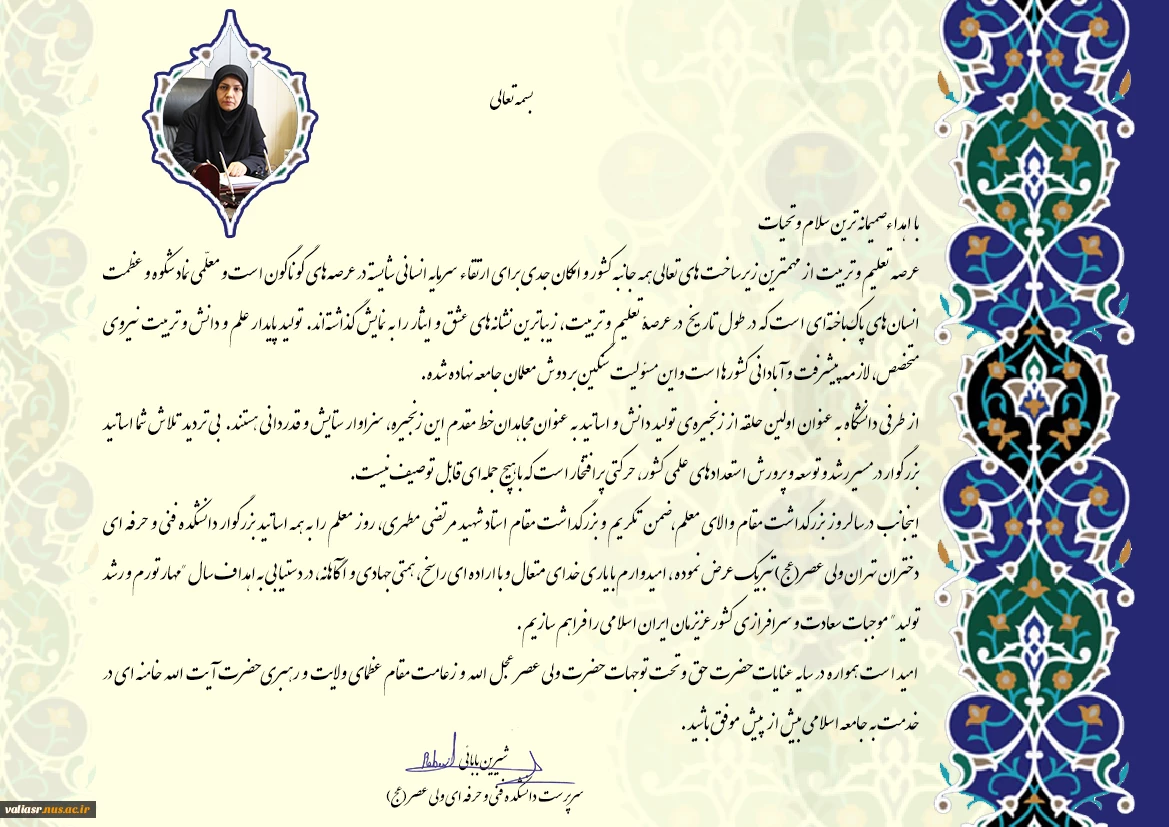 بسمه تعالی
با اهداء صمیمانه ترین سلام و تحیات
عرصه تعلیم و تربیت از مهمترین زیرساخت های تعالی همه جانبه کشور و امکان جدی برای ارتقاء سرمایه انسانی شایسته در عرصه های گوناگون است و معلّمی نماد شکوه و عظمت
انسان های پاک باخته ای است که در طول تاریخ در عرصهٔ تعلیم و تربیت، زیباترین نشانه های عشق و ایثار را به نمایش گذاشته اند. تولید پایدار علم و دانش و تربیت نیروی
متخصص، لازمه پیشرفت و آبادانی کشورها است و این مسؤلیت سنگین بر دوش معلمان جامعه نهاده شده.
از طرفی دانشگاه به عنوان اولین حلقه از زنجیره ی تولید دانش و اساتید به عنوان مجاهدان خط مقدم این زنجیره، سزاوار ستایش و قدردانی هستند. بی تردید تلاش شما اساتید
بزرگوار در مسیر رشد و توسعه و پرورش استعدادهای علمی کشور، حرکتی پرافتخار است که با هیچ جمله ای قابل توصیف نیست.
اینجانب در سالروز بزرگداشت مقام والای معلم، ضمن تکریم و بزرگداشت مقام استاد شهید مرتضی مطهری، روز معلم را به همه اساتید بزرگوار دانشکده فنی و حرفه ای
دختران تهران ولی عصر(عج) تبریک عرض نموده، امیدوارم با یاری خدای متعال و با اراده ای راسخ، همتی جهادی و آگاهانه، در دستیابی به اهداف سال "مهار تورم و رشد
تولید" موجبات سعادت و سرافرازی کشور عزیزمان ایران اسلامی را فراهم سازیم.
امید است همواره در سایه عنایات حضرت حق و تحت توجهات حضرت ولی عصر عجل الله و زعامت مقام عظمای ولایت و رهبری حضرت آیت الله خامنه ای در
خدمت به جامعه اسلامی بیش از پیش موفق باشید.
شیرین بابائی
سرپرست دانشکده فنی و حرفه ای ولی عصر(عج)
valiasr.nus.ac.ir